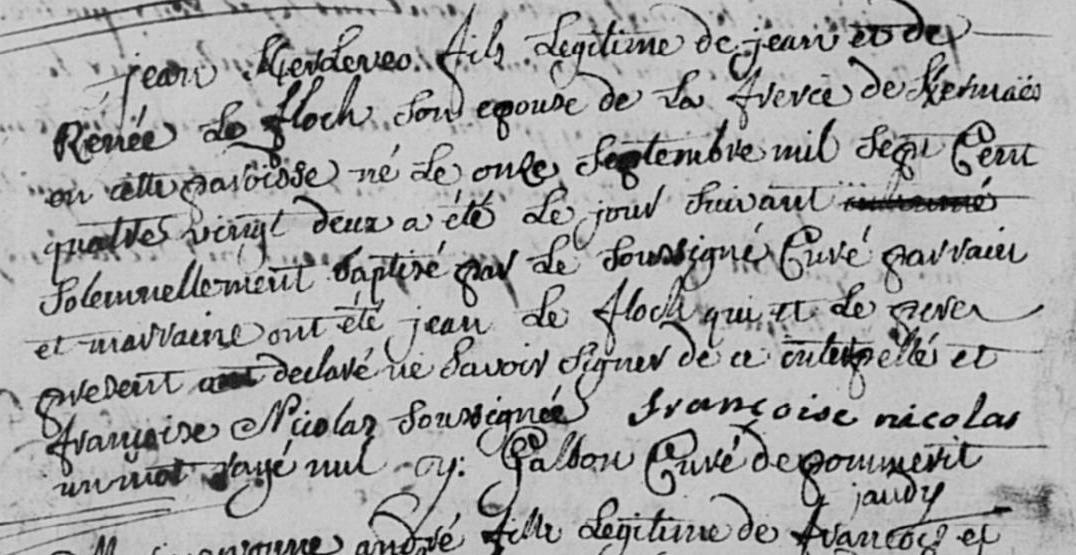 jean Kerdeveo fils Legitime de jean et de
Renée Le floch son epouse de La treve de Kermaës
en cette paroisse né Le onze Septembre mil Sept Cent
quatre vingt deux a été Le jour Suivant
Solemnellement baptisé par Le Soussigné Curé parrain
et marraine ont été jean Le floch qui et Le pere
present declaré ne Savoir Signer de ce interpellé et
françoise Nicolas Soussignée françoise nicolas
un mot rayé nul Curé de pommerit
jaudy
andré fille Legitime de francois et